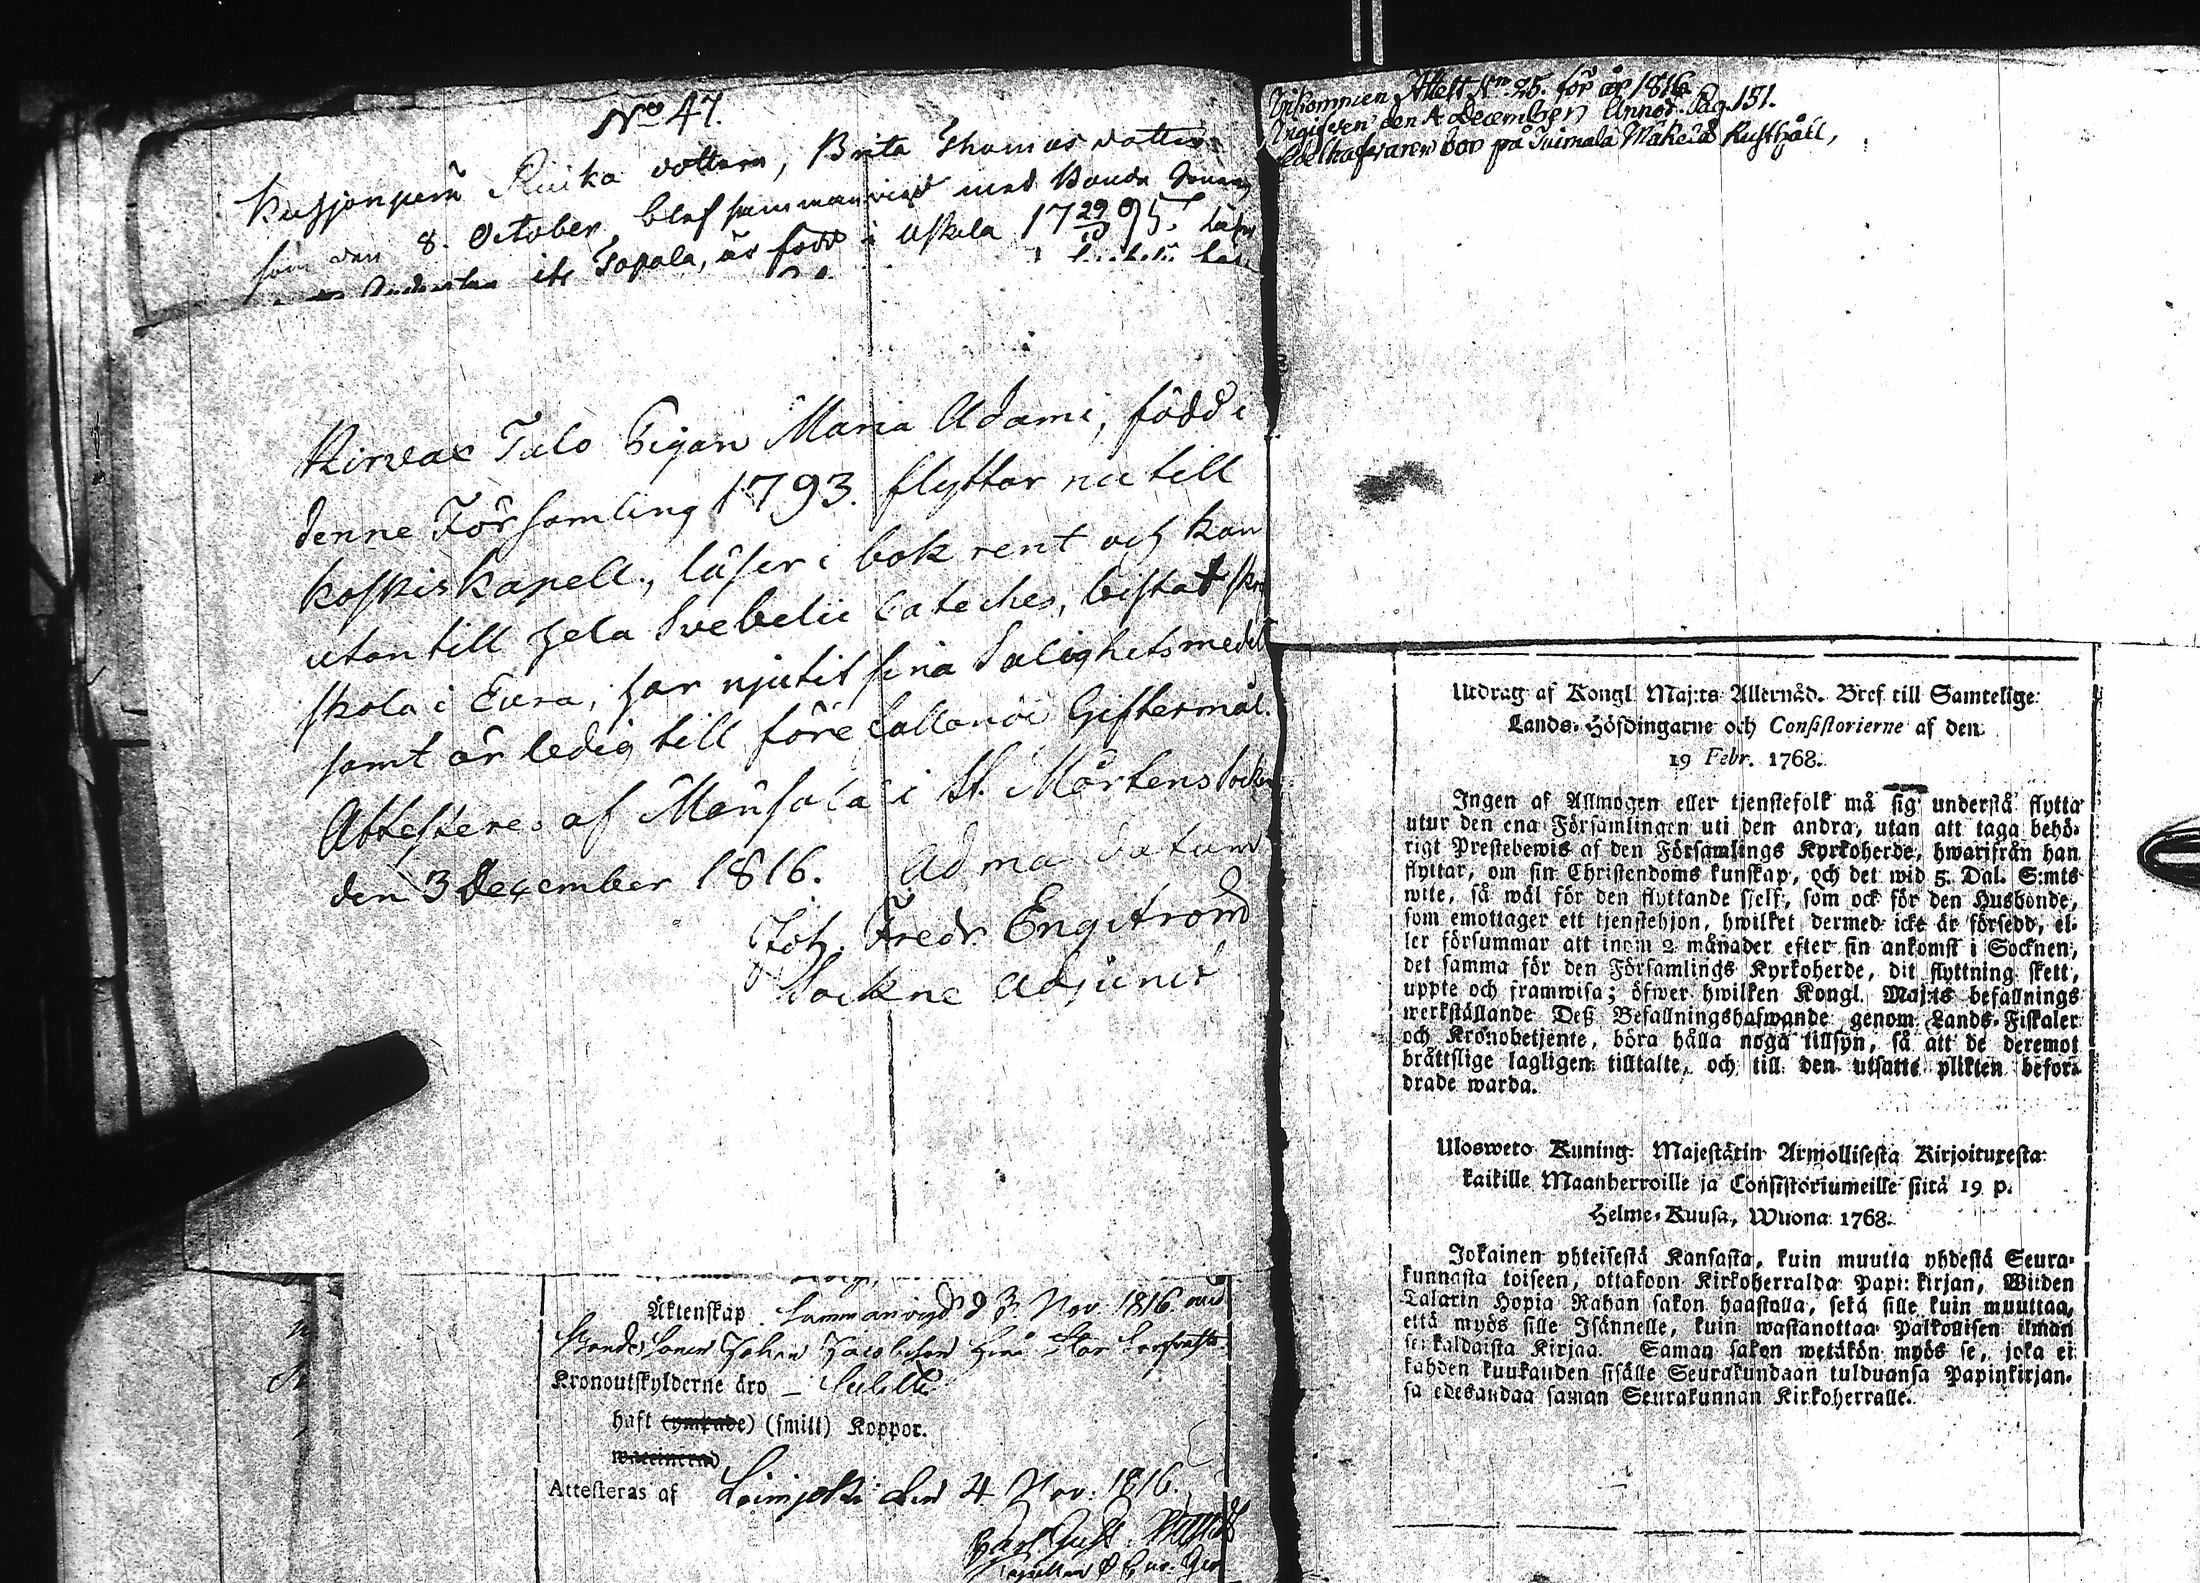 No 47.
Kussjonperä Ruika dottern, Brita Thomas dotter
som den 8. October blef sammanvigd med Bonde Sonen
Tapala, är född i Uskela 17 29/10 95. Läser
Kirvas Talo Pigan Maria Adami, född i
denne Församling 1793. flyttar nu till
Koskis Kapell, läser i bok rent och kan
utantill hela Svebelii Cateches, bistat skrif
skola i Eura, har njutit sina Salighetsmedel
samt är ledig till förefallande Giftermål.
Attesteres af Mansala i St. Mårtens Socken
den 3 December 1816. ad ma datum
Joh. Fredr. Engström
Sockne Adjunct
Äktenskap. Sammanvigd d 3 Nov. 1816 med
Bonde Sonen Johan Jacobsson
Kronoutskylderne äro –
haft (ympade) (smitt) Koppor.
waccinerad
Attesteras af Loimjoki den 4 Nov. 1816.
Carl Gust.
Inkommen Attest Nro 25. för år 1816
Ingifven den 4 December Annot. Pag. 151.
Edelhafvaren bor på Tuimala Mäkilä Rusthåll,
Utdrag af Kongl. Maj:ts Allernåd. Bref till Samtelige
Lands-Höfdingarne och Consistorierne af den
19 Febr. 1768.
Ingen af Allmogen eller tjenstefolk må sig understå flytta
utur den ena Församlingen uti den andra, utan att taga behö-
rigt Prestebewis af den Församlings Kyrkoherde, hwarifrån han
flyttar, om sin Christendoms kunskap, och det wid 5. Dal. S:mts
wite, så wäl för den flyttande sjelf, som ock för den Husbonde,
som emottager ett tjenstehjon, hwilket dermed icke är försedd, el-
ler försummar att inom 2 månader efter sin ankomst i Socknen,
det samma för den Församlings Kyrkoherde, dit flyttning skett,
uppte och framwisa; öfwer hwilken Kongl. Maj:ts befallnings
werkställande Deß Befallningshafwande genom Lands-Fiskaler
och Kronobetjente, böra hålla noga tillsyn, så att de deremot
brättslige lagligen tilltalte, och till den utsatte plikten befor-
drade warda.
Ulosweto Kuning. Majestätin Armollisesta Kirjoituxesta
kaikille Maanherroille ja Consistoriumeille siitä 19 p.
Helme-Kuusa, Wuona 1768.
Jokainen yhteisestä Kansasta, kuin muutta yhdestä Seura-
kunnasta toiseen, ottakoon Kirkoherralda Papi: kirjan, Wiiden
Talarin Hopia Rahan sakon haastolla, sekä sille kuin muuttaa,
että myös sille Isännelle, kuin wastanottaa Palkollisen ilman
sen kaldaista Kirjaa. Saman sakon wetäkön myös se, joka ei
kahden kuukauden sisälle Seurakundaan tulduansa Papinkirjan-
sa edesandaa saman Seurakunnan Kirkoherralle.